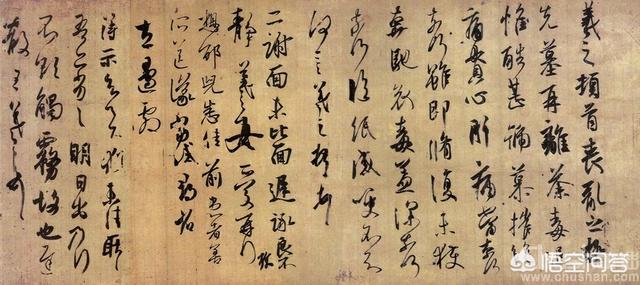 羲之頓首喪亂之極
先墓再離荼毒追
惟酷甚號慕摧絕
痛貫心肝痛當奈何
奈何雖即脩復未獲
奔馳哀毒益深奈何
奈何臨紙感哽不知
何言羲之頓首頓首
二謝面未比面遲詠良不
靜羲之女愛再拜
想邵兒悉佳前患者善
所送議當試尋省
左邊劇
得示知足下猶未佳耿耿
吾亦劣劣明日出乃行
不欲觸霧故也遲
散王羲之頓首
悟空问答
www.chushan.com